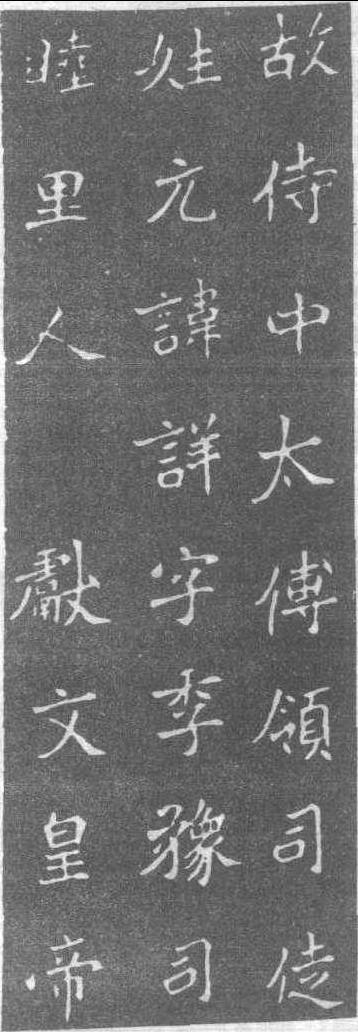 故侍中太傅領司徒
姓元諱詳字季豫司
睦里人 獻文皇帝